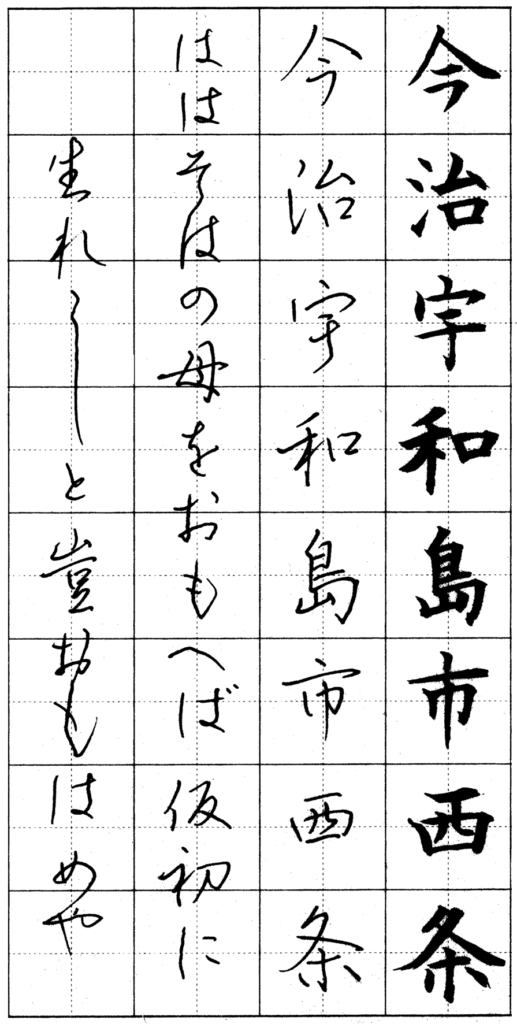 今治宇和島市西条
今治宇和島市西条
ははそはの母をおもへば仮初に
生れしと豈おもはめや